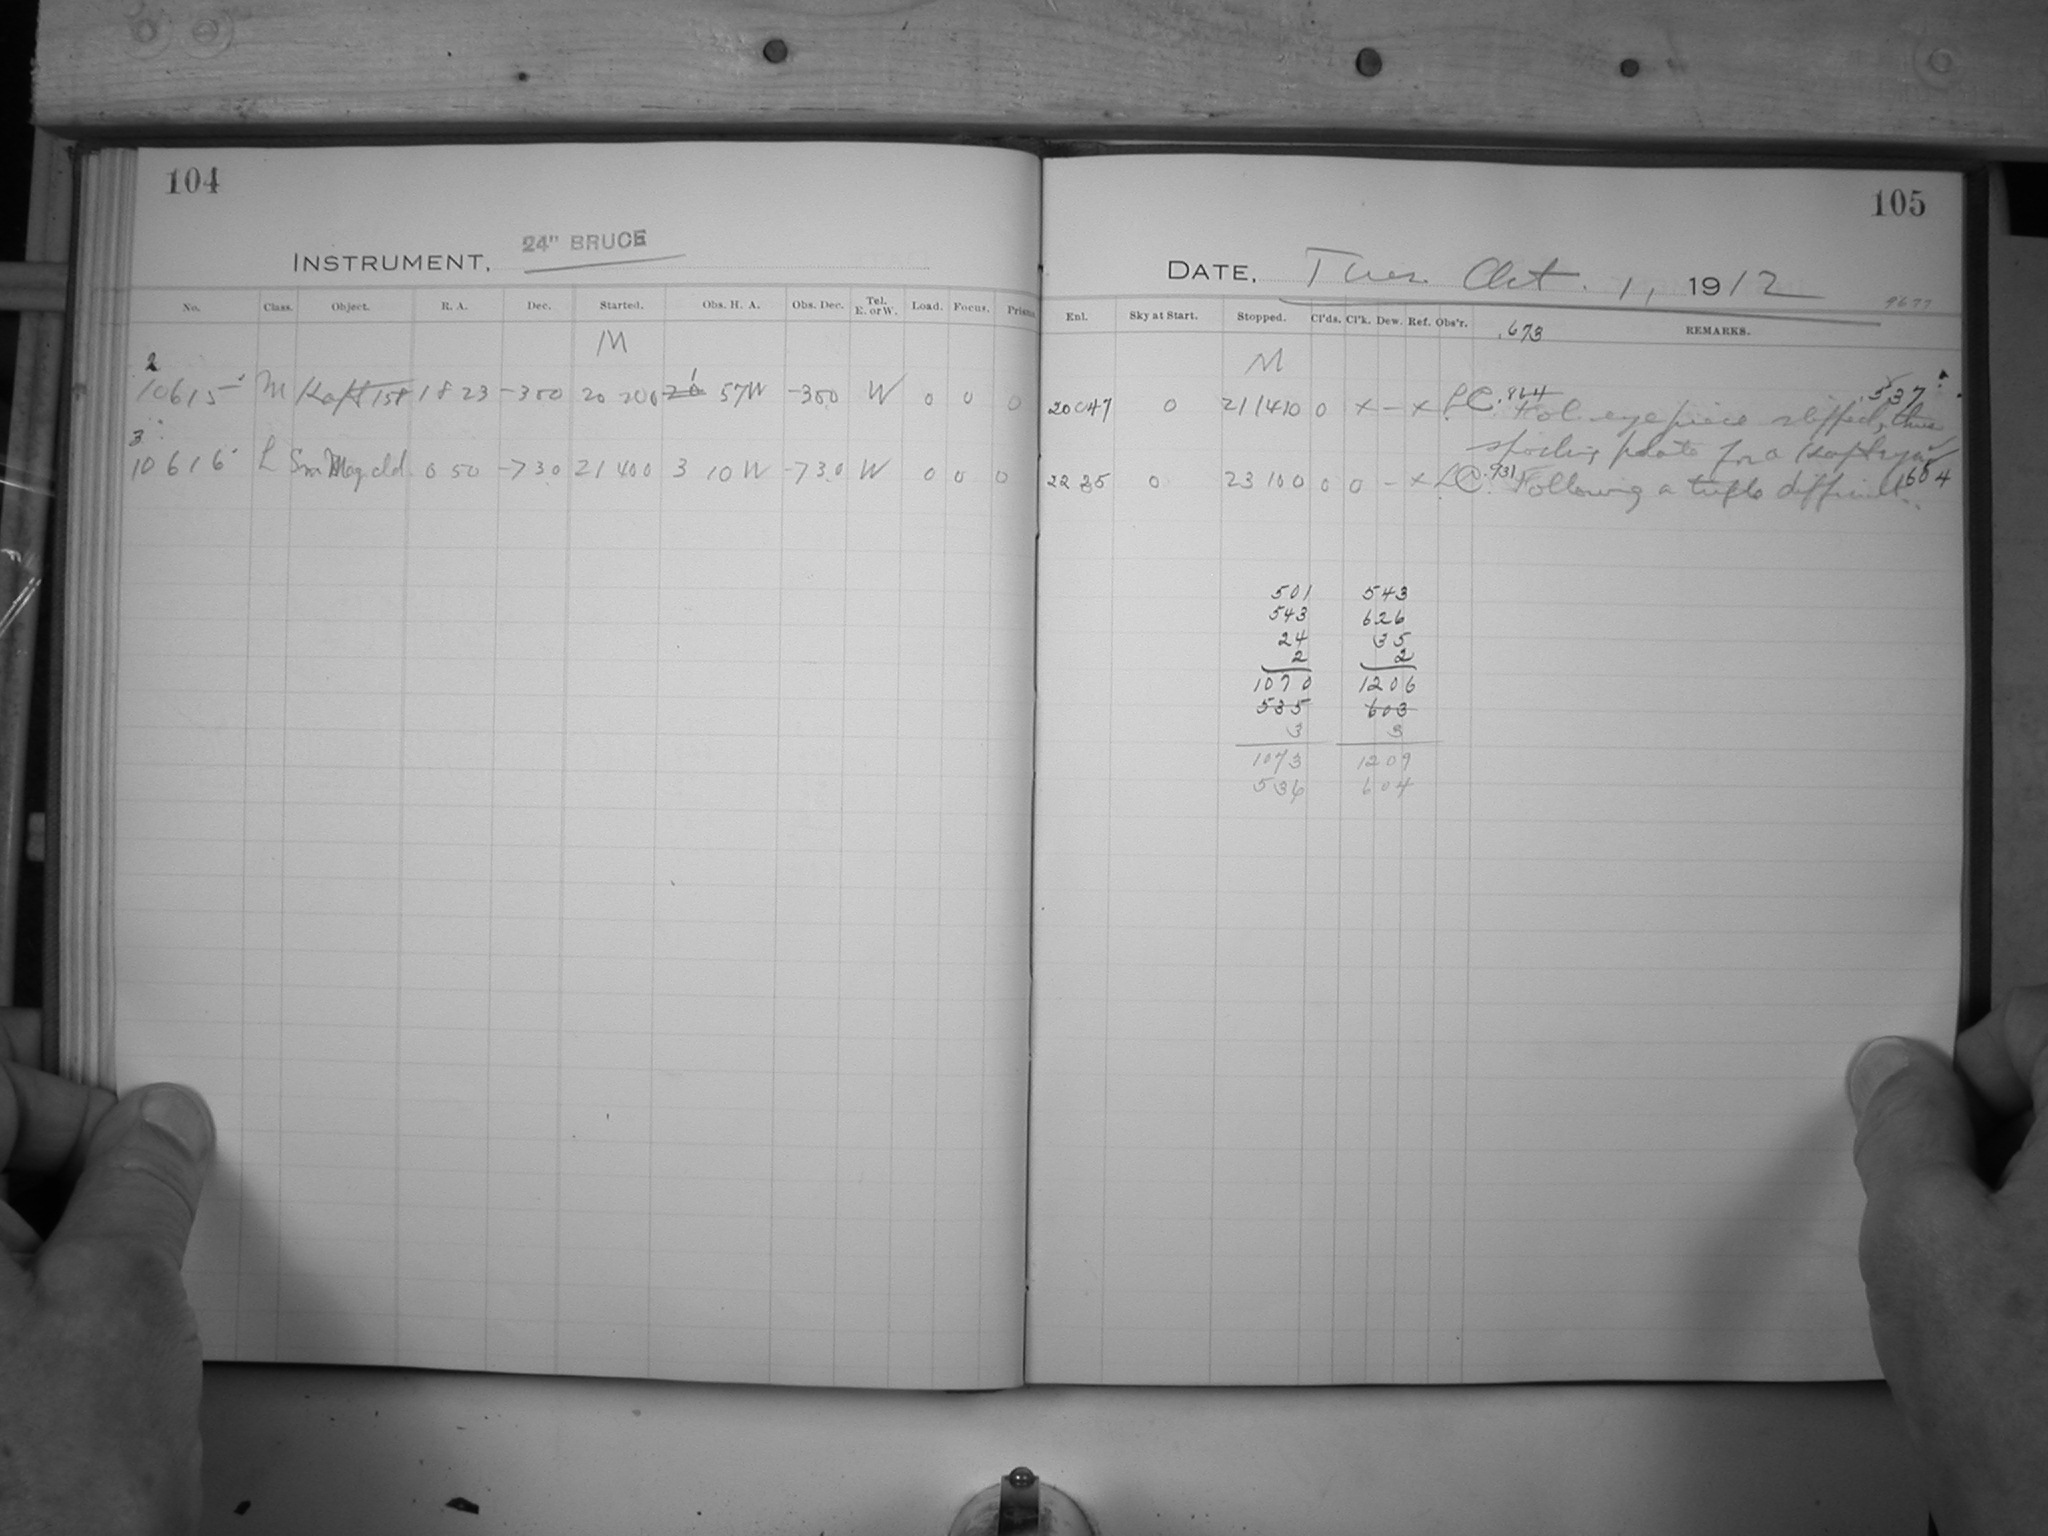 104
INSTRUMENT, 24" BRUCE
No. Class. Object. R. A. Dec. Started. Obs. H. A. Obs. Dec. Tel. E. or W. Load. Focus. Prisms
M
2
10615 M Kapt 158 18 23 -300 20 200 20 1 57W -300 W 0 0 0
3
10616 L Sm Mag cld 0 50 -730 21 400 3 10 W -730 W 0 0 0
105
DATE, Tues. Oct. 1, 1912
9677
Enl. Sky at Start. Stopped. Cl'ds. Cl'k. Dew. Ref. Obs'r. .673 REMARKS.
M
20 047 0 21 140 0 x - x LC. .964 Fol. eyepiece slipped, thus .537
spoiling plate for a Kapteyn
22 25 0 23 100 0 0 - x LC. .931 Following a trifle difficult. .604
501 543
543 626
24 35
2 2
1070 1206
535 603
3 3
1073 1209
536 604